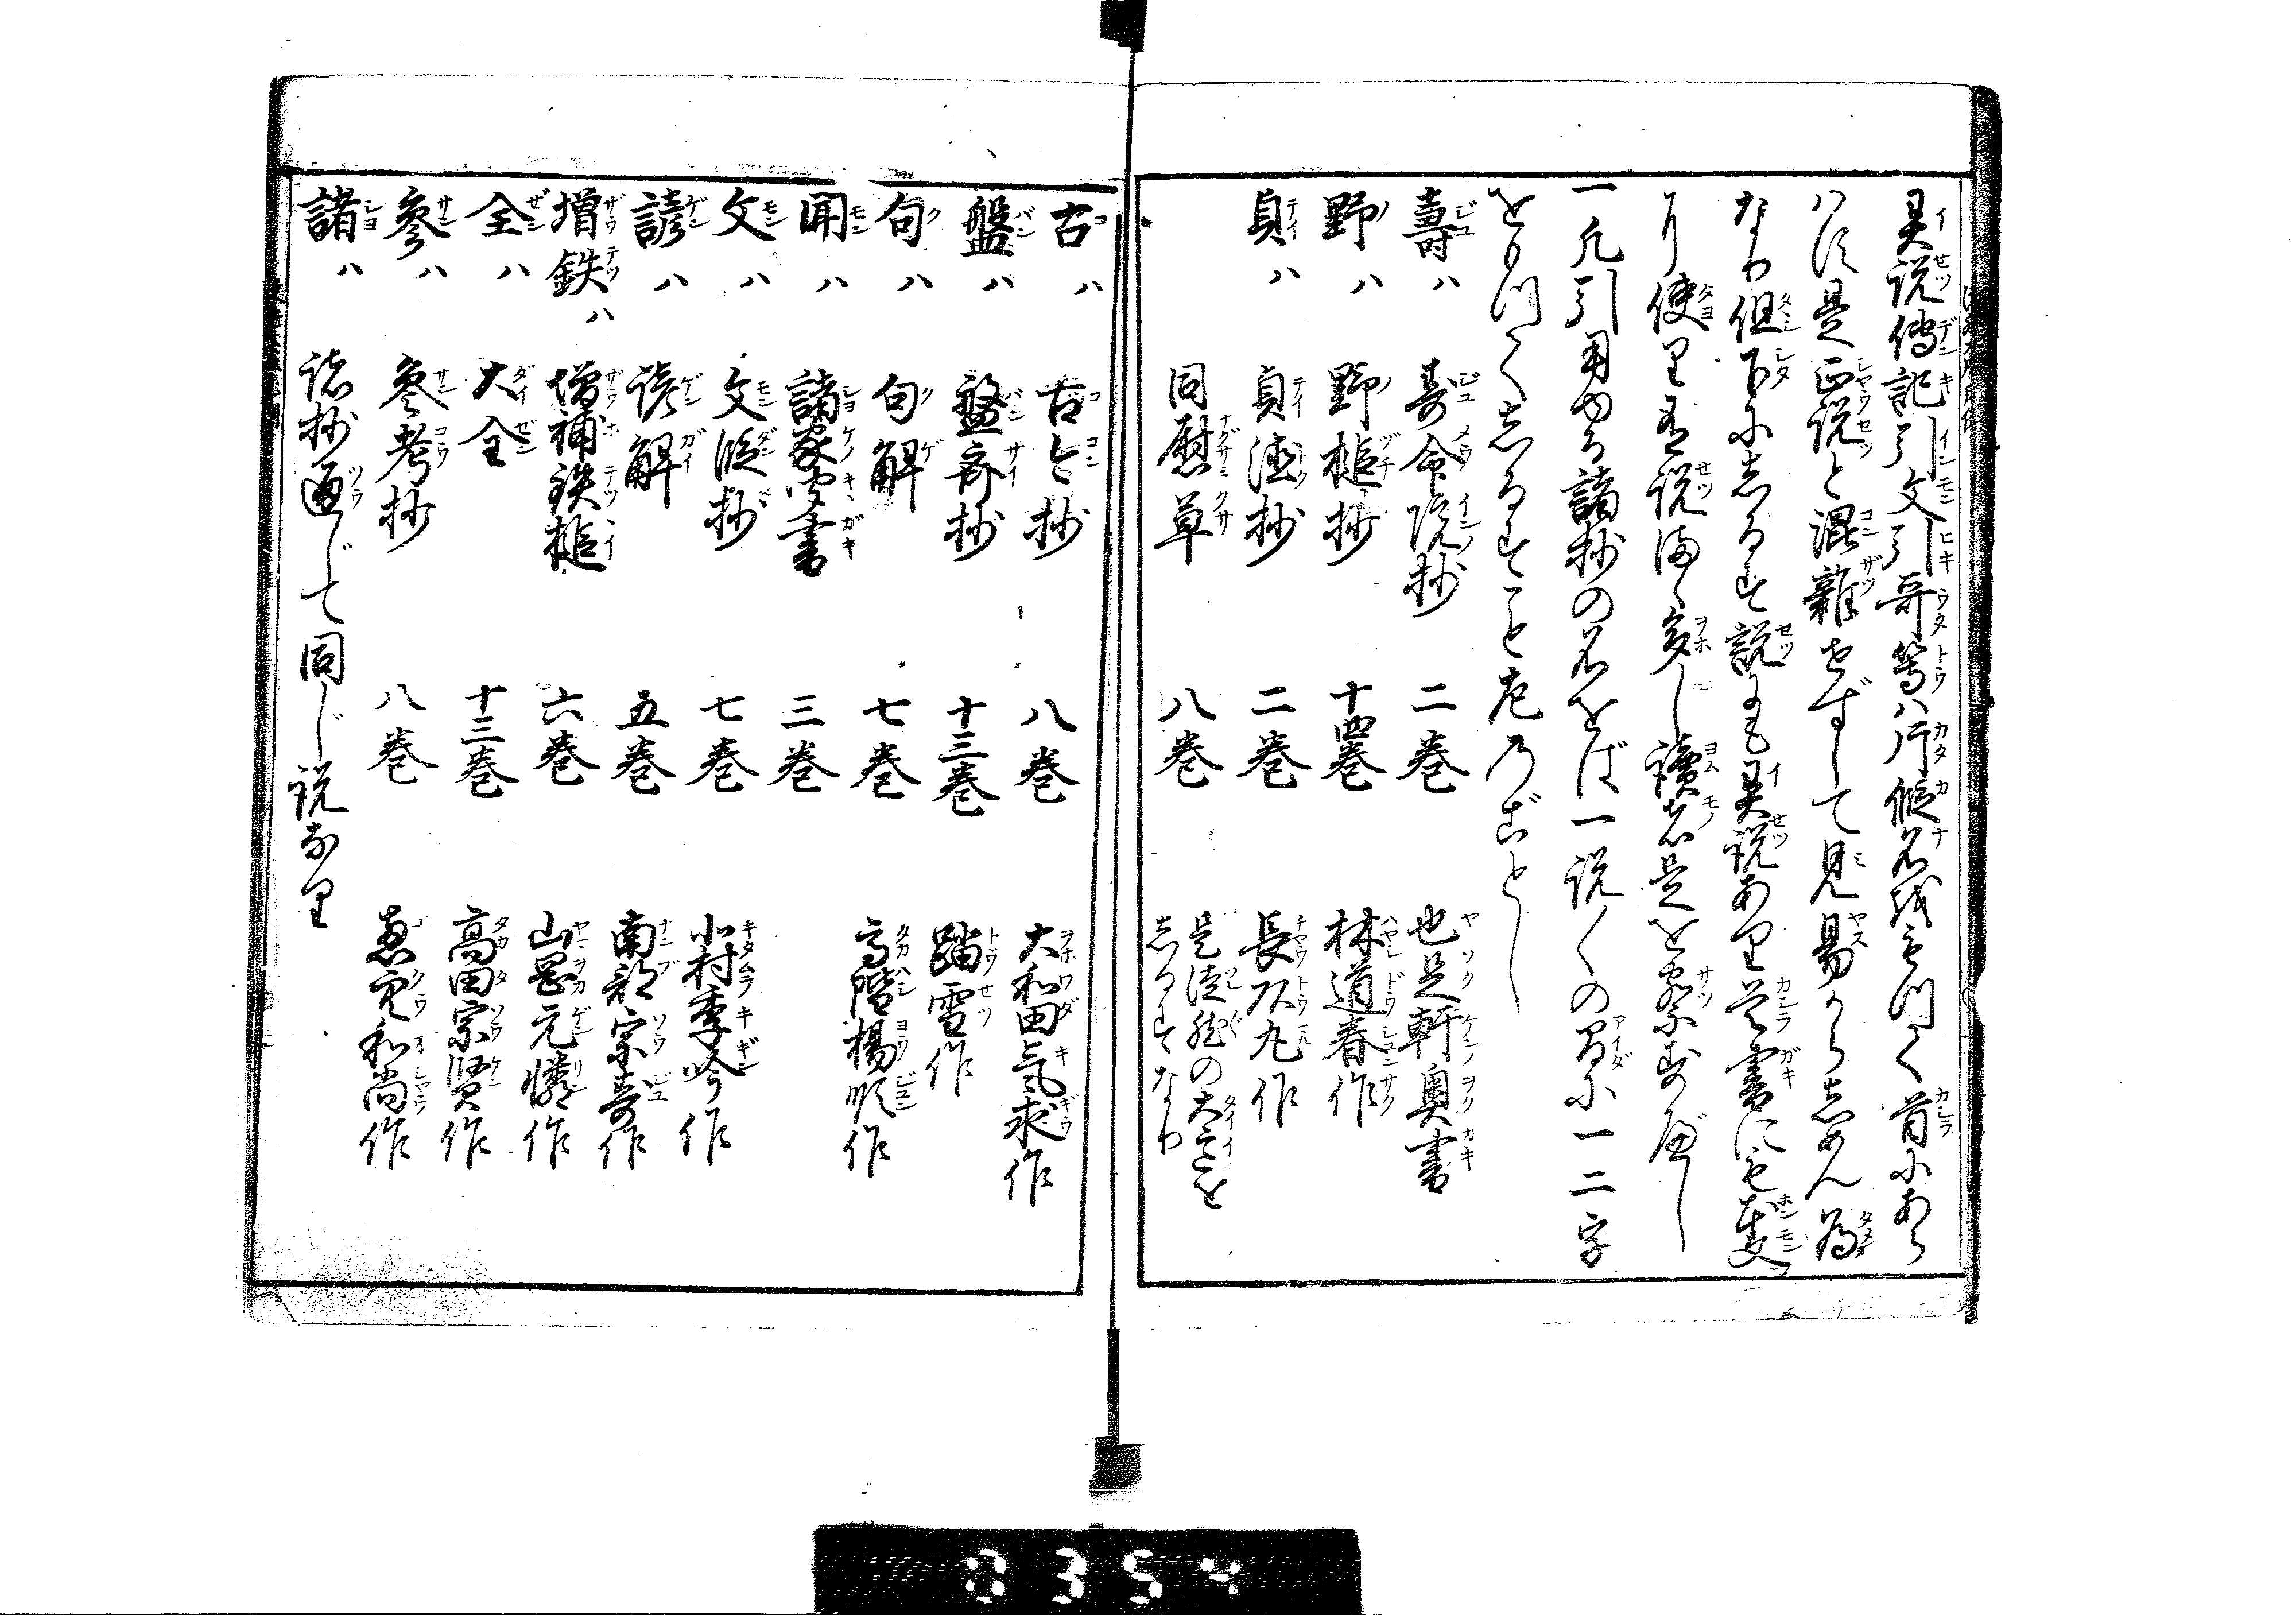 異説傳記引文引哥等ハ片假名をもつて首にあら
ハす是正説と混雜せずして見易からしめん為
なり但下にしるす説にも異説あり又首書にも本文
に使りよき説まゝ多し讀者是を察すべし
一凡引用ゆる諸抄の名をば一説〳〵の間に一二字
をもつてしるすこと左のごとし
壽ハ 壽命院抄 二巻 也足軒奥書
野ハ 野槌抄 十四巻 林道春作
貞ハ 貞徳抄 二巻 長頭丸作
同慰草 八巻 是徒然の大意をしるすなり
古ハ 古今抄 八巻 大和田氣求作
盤ハ 盤斎抄 十三巻 踏雪作
句ハ 句解 七巻 高階楊順作
聞ハ 諸家聞書 三巻
文ハ 文段抄 七巻 北村季吟作
諺ハ 諺解 五巻 南部宗壽作
増鉄ハ 増補鉄槌 六巻 山岡元憐作
全ハ 大全 十三巻 高田宗賢作
参ハ 参考抄 八巻 恵空和尚作
諸ハ 諸抄通じて同じ説なり
0354